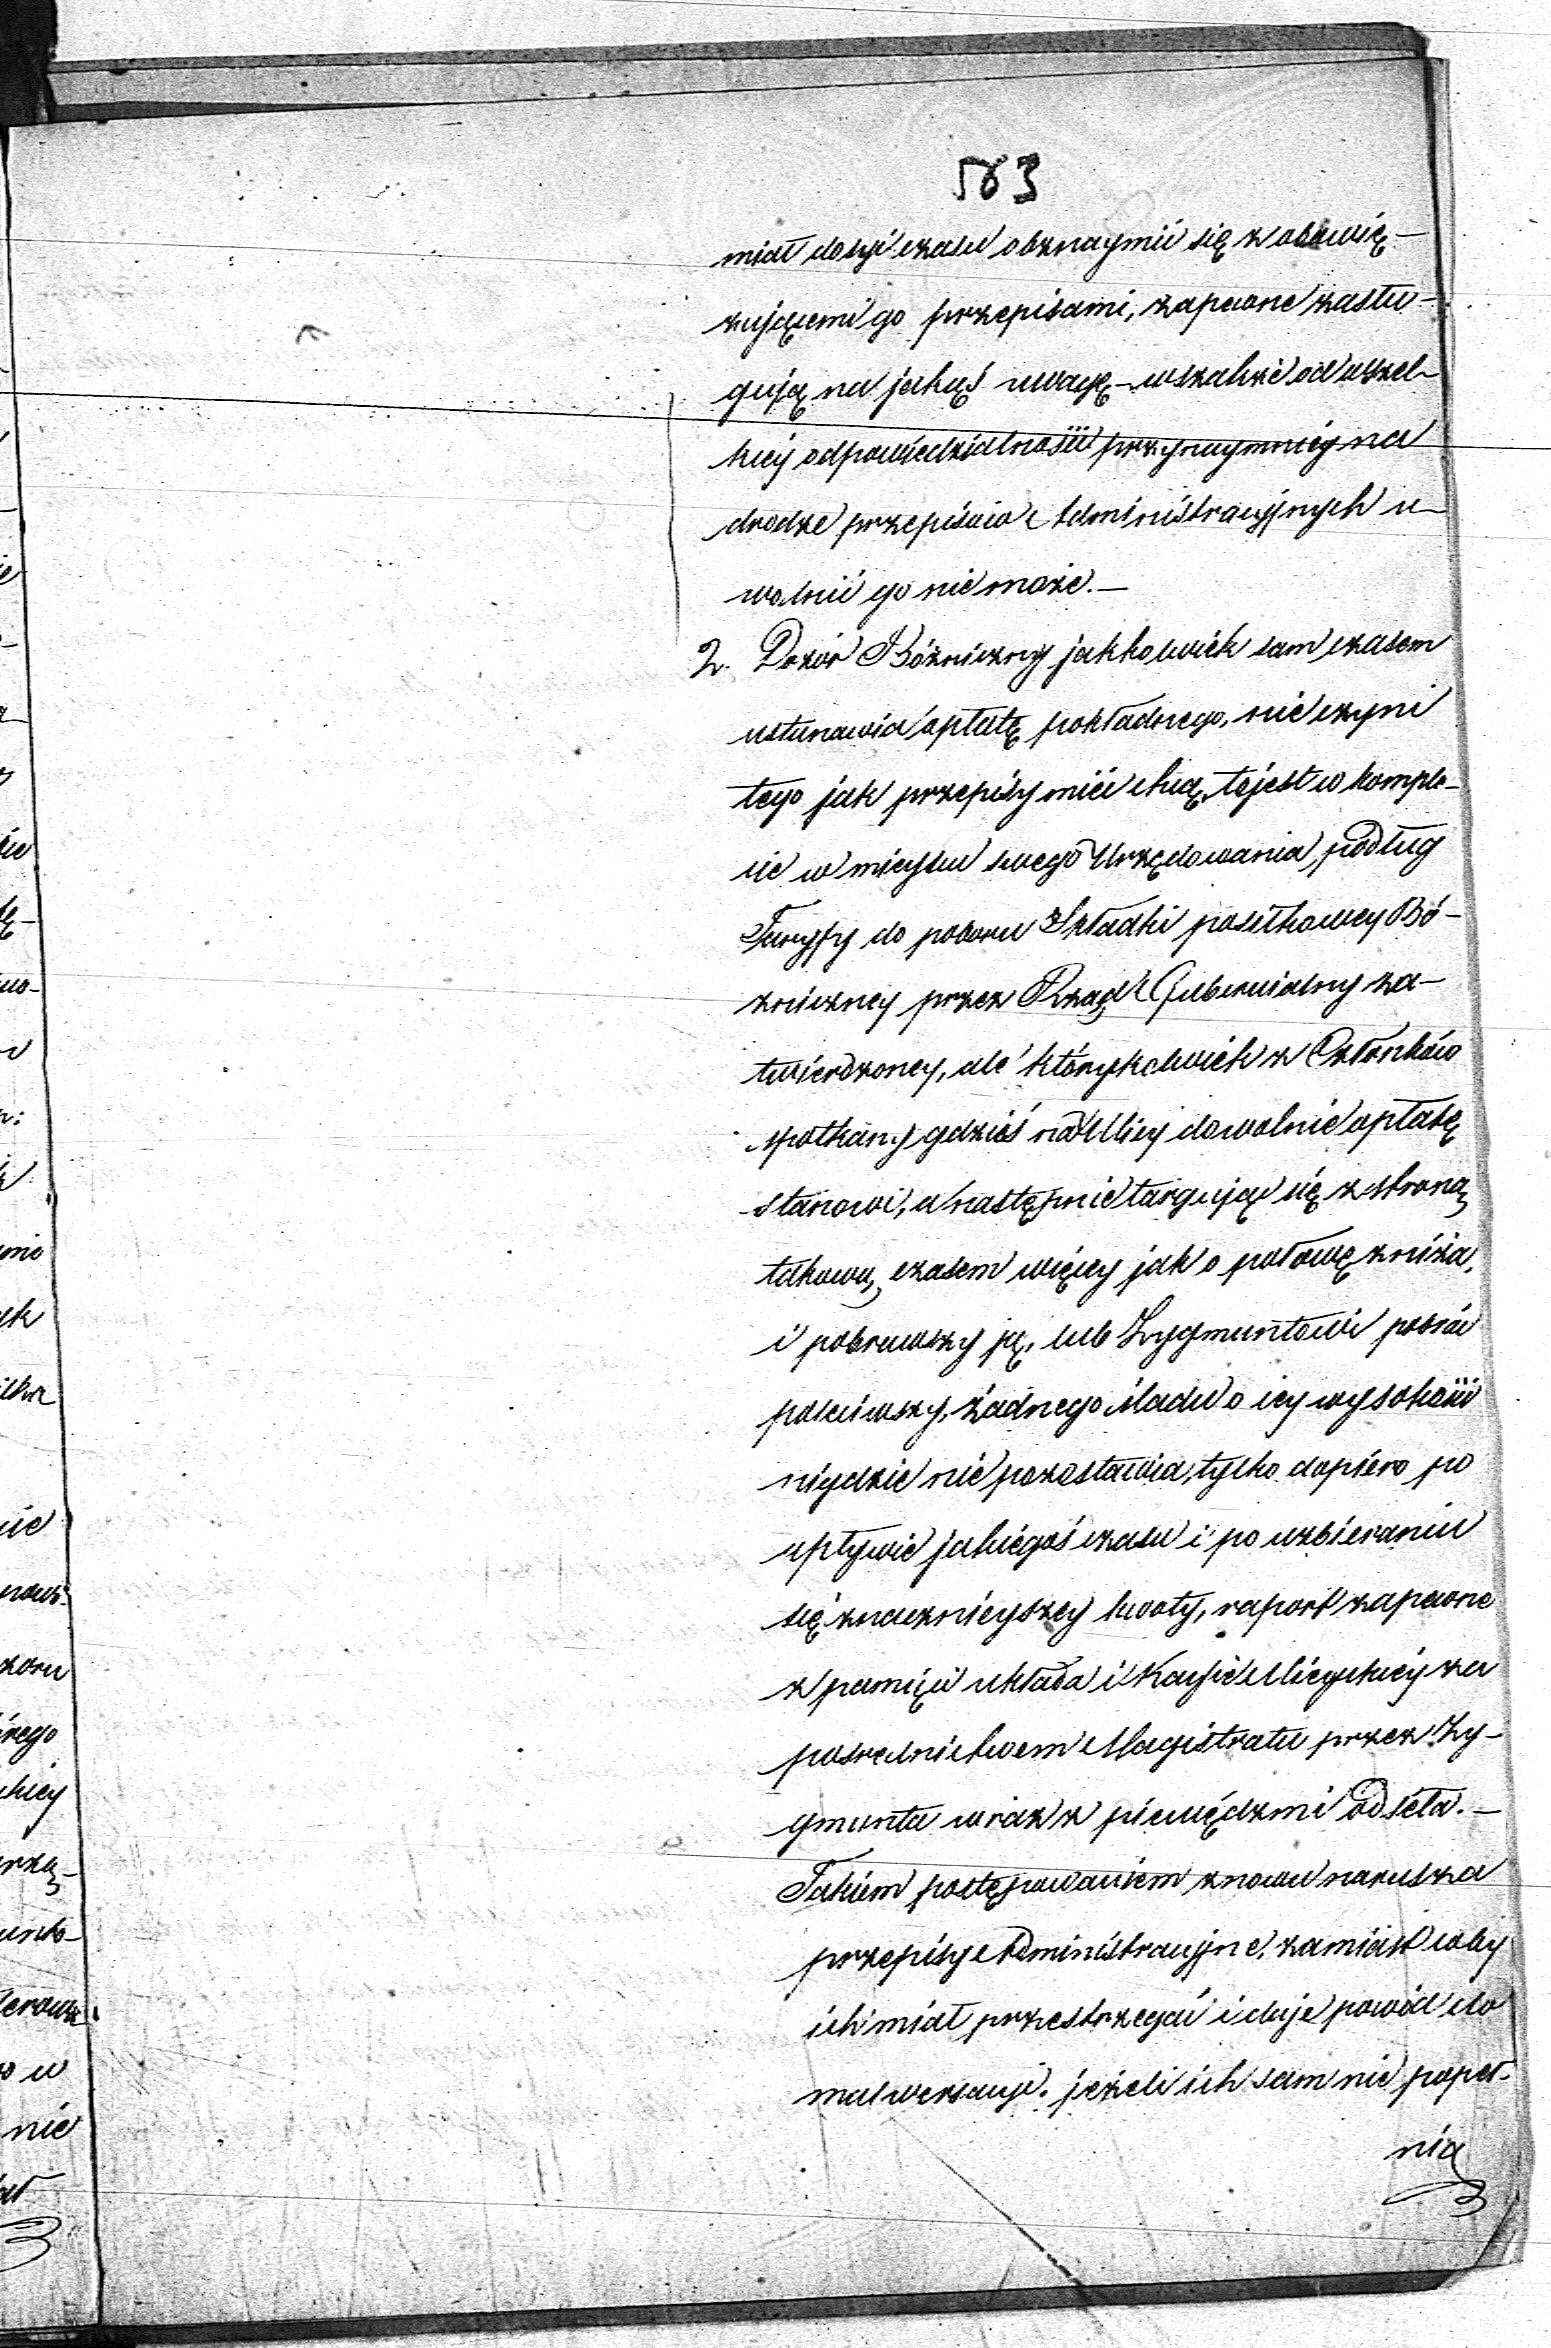 563
miał dosyć czasu obznaymić się z obowię-
zującemi go przepisami, zapewne zasłu-
gują na jakąś uwagę - wszakże od wszel-
kiey odpowiedzialności przynaymniey na
drodze przepisów Administracyjnych u-
wolnić go nie może. -
2. Dozór Bóżniczny jakkolwiek sam czasem
ustanawia opłatę pokładnego, nie czyni
tego jak przepisy mieć chcą, to jest w komple-
cie w mieyscu swego Urzędowania podług
Taryffy do poboru Składki posiłkowey Bó-
zniczney przez Rząd Gubernialny za-
twierdzoney, ale którykolwiek z Członków
spotkany gdzieś na Ulicy dowolnie opłatę
stanowi, a następnie targując się z stroną
takową czasem więcey jak o połowę zniża,
i pobrawszy ją, lub Zygmuntowi pobrać
poleciwszy, żadnego śladu o iey wysokości
nigdzie nie pozostawia, tylko dopiero po
upływie jakiegoś czasu i po uzbieraniu
się znacznieyszey kwoty, raport zapewne
z pamięci układa i Kassie Mieyskiey za
pośrednictwem Magistratu przez Zy-
gmunta wraz z pieniędzmi odseła. -
Takiem postępowaniem znowu narusza
przepisy Administracyjne, zamiast coby
ich miał przestrzegać i daje powód do
malwersacji, jeżeli ich sam nie popeł-
nia